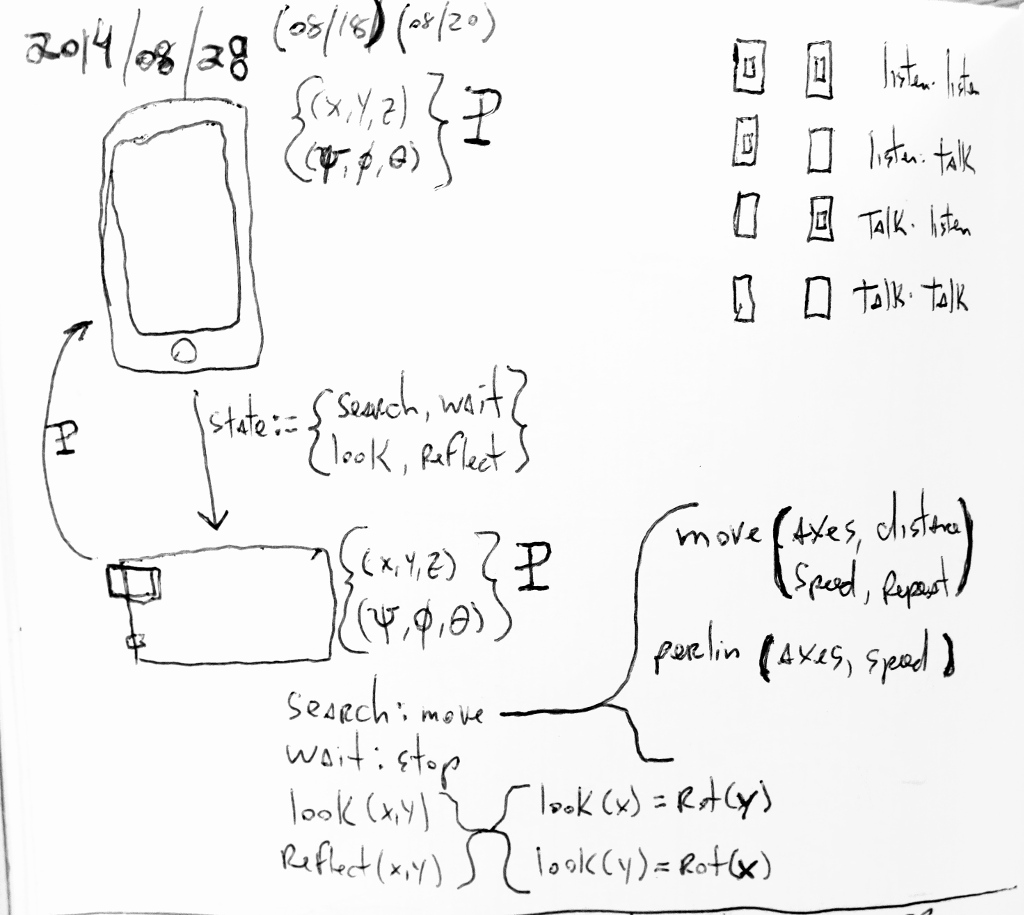 2014/08/28 (08/18) (08/20)
{(x,y,z)
(Ψ,φ,θ)} P
listen. listen
listen. talk
Talk. listen
talk. talk
P
state:= {search, wait
look, reflect}
{(x,y,z)
(Ψ,φ,θ)} P
move (Axes, distance
speed, Repeat)
perlin (Axes, speed)
search: move
wait: stop
look (x,y)
Reflect (x,y)
look(x) = Rot(y)
look(y) = Rot(x)